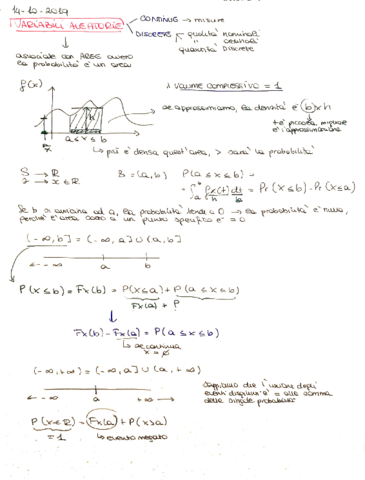 14-10-2019
VARIABILI ALEATORIE → CONTINUE → misure
DISCRETE → qualità nominali
" ordinali
quantità discrete
associate con AREE ovvero
la probabilità è un area
f(x)
↓ VOLUME COMPLESSIVO = 1
se approssimiamo, la densità è b x h
+ è piccola, migliore
è l'approssimazione
a ≤ x ≤ b
↳ più è densa quest'area, > sarà la probabilità
S → R
x ∈ R
B = (a, b) P(a ≤ x ≤ b) =
= ∫ fx(t) dt = Pr(X ≤ b) - Pr(X ≤ a)
h b
Se b si avvicina ad a, la probabilità tende a 0 → la probabilità è nulla,
perché l'area sotto a un punto specifico è = 0
(-∞, b] = (-∞, a] ∪ (a, b]
← - ∞ a b
P(x ≤ b) = Fx(b) = P(x ≤ a) + P(a ≤ x ≤ b)
Fx(a) + P
Fx(b) - Fx(a) = P(a ≤ x ≤ b)
↳ se continua
(-∞, +∞) = (-∞, a] ∪ (a, +∞)
← - ∞ a + ∞ →
sappiamo che l'unione degli
eventi disgiunti è = alla somma
delle singole probabilità
P(x ∈ R) = Fx(a) + P(x > a)
= 1 ↳ evento negato